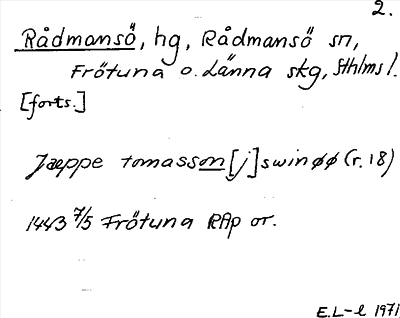 2.
Rådmansö, hg, Rådmansö sn,
Frötuna o. Länna skg, Sthlms l.
[forts.]
Jæppe tomasson [j] swinøø (r. 18)
1443 7/5 Frötuna RAp or.
E.L-l 1971